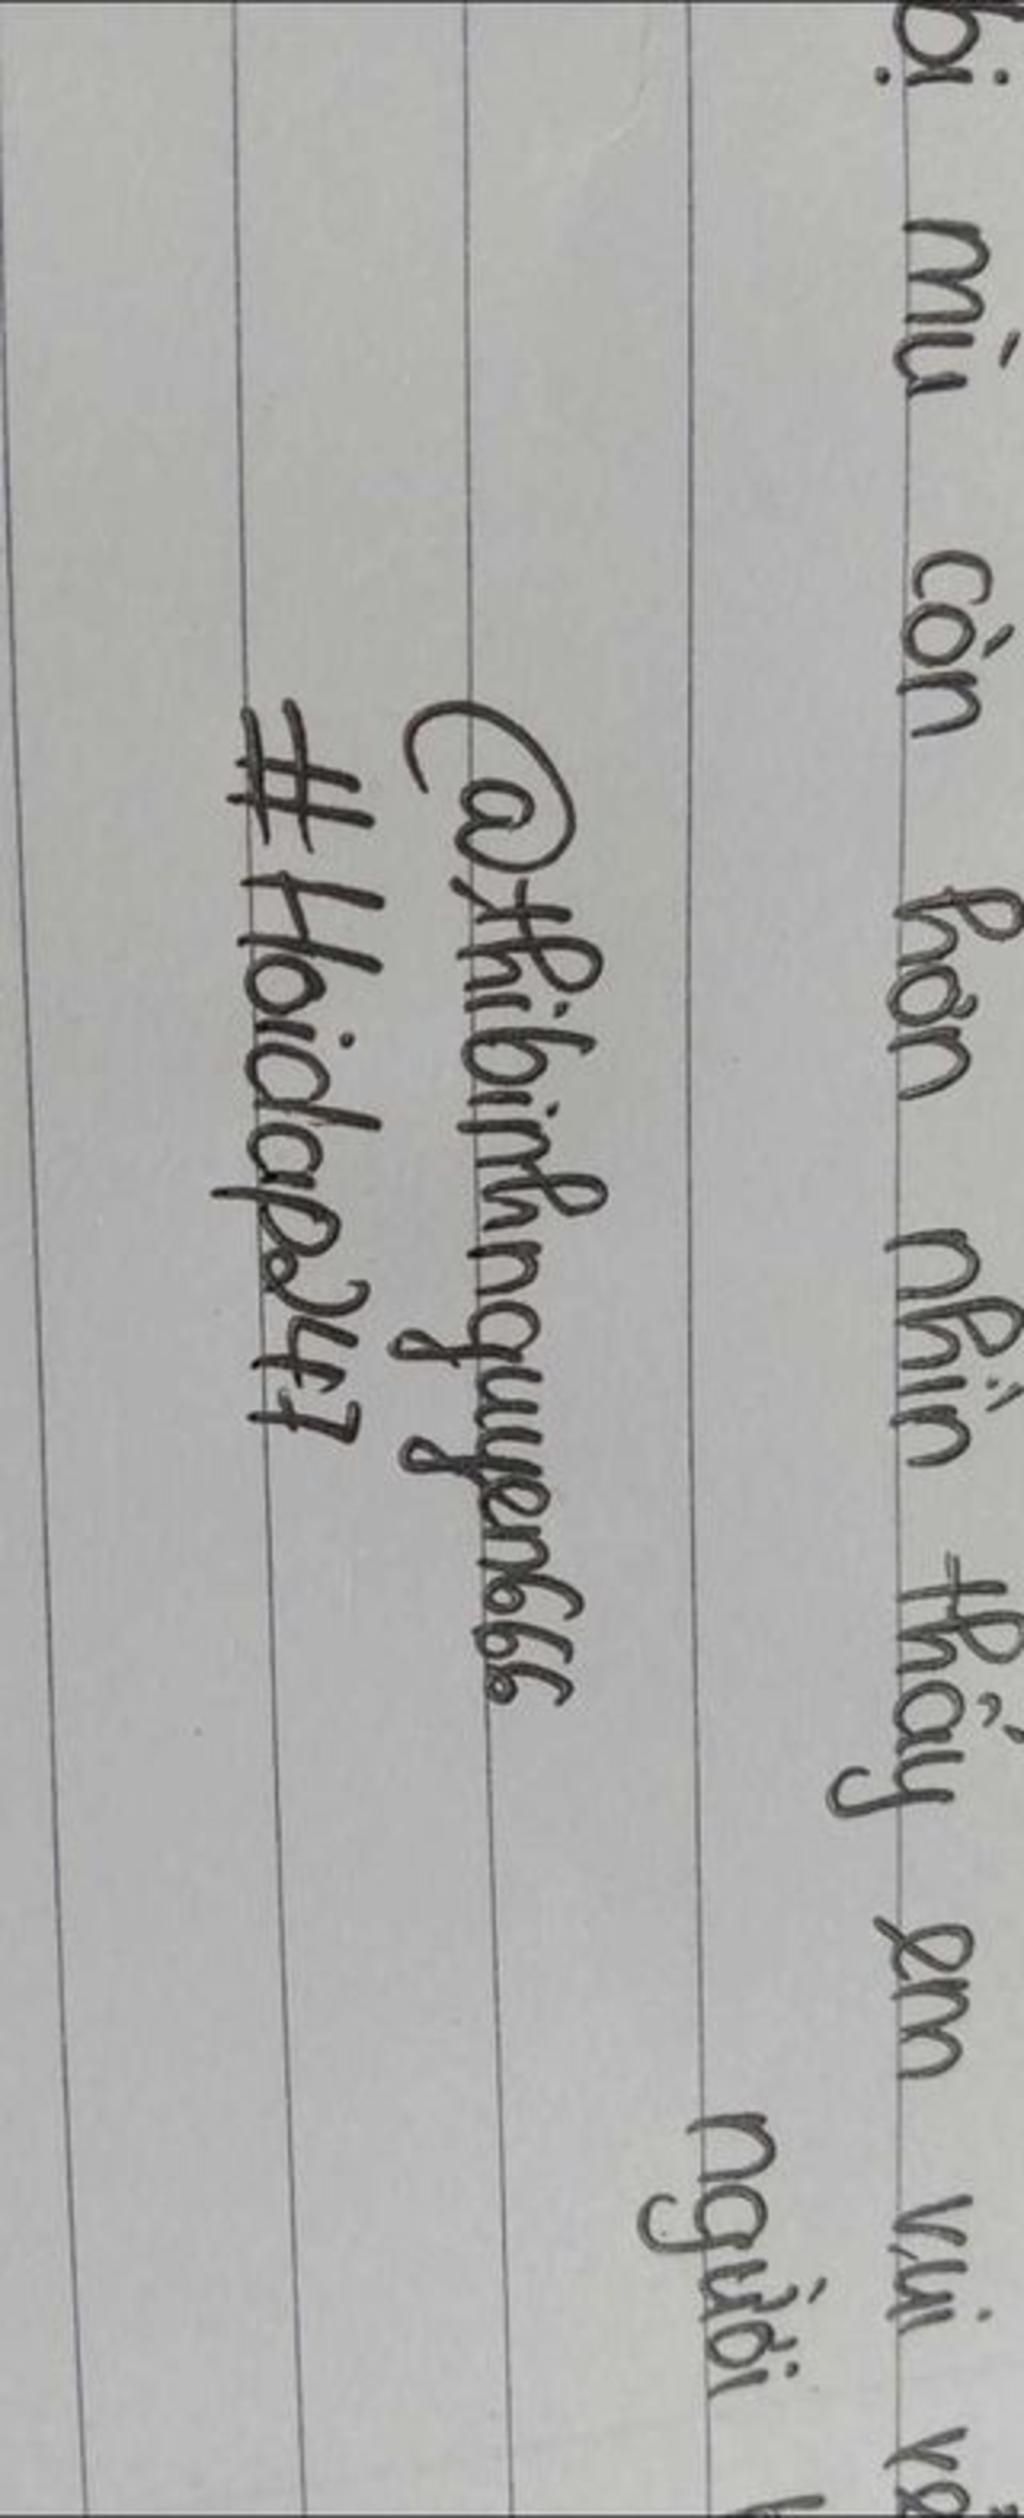 bị mù còn hơn nhìn thấy em vui
người
@thibinhnguyen666
#Hoidap247